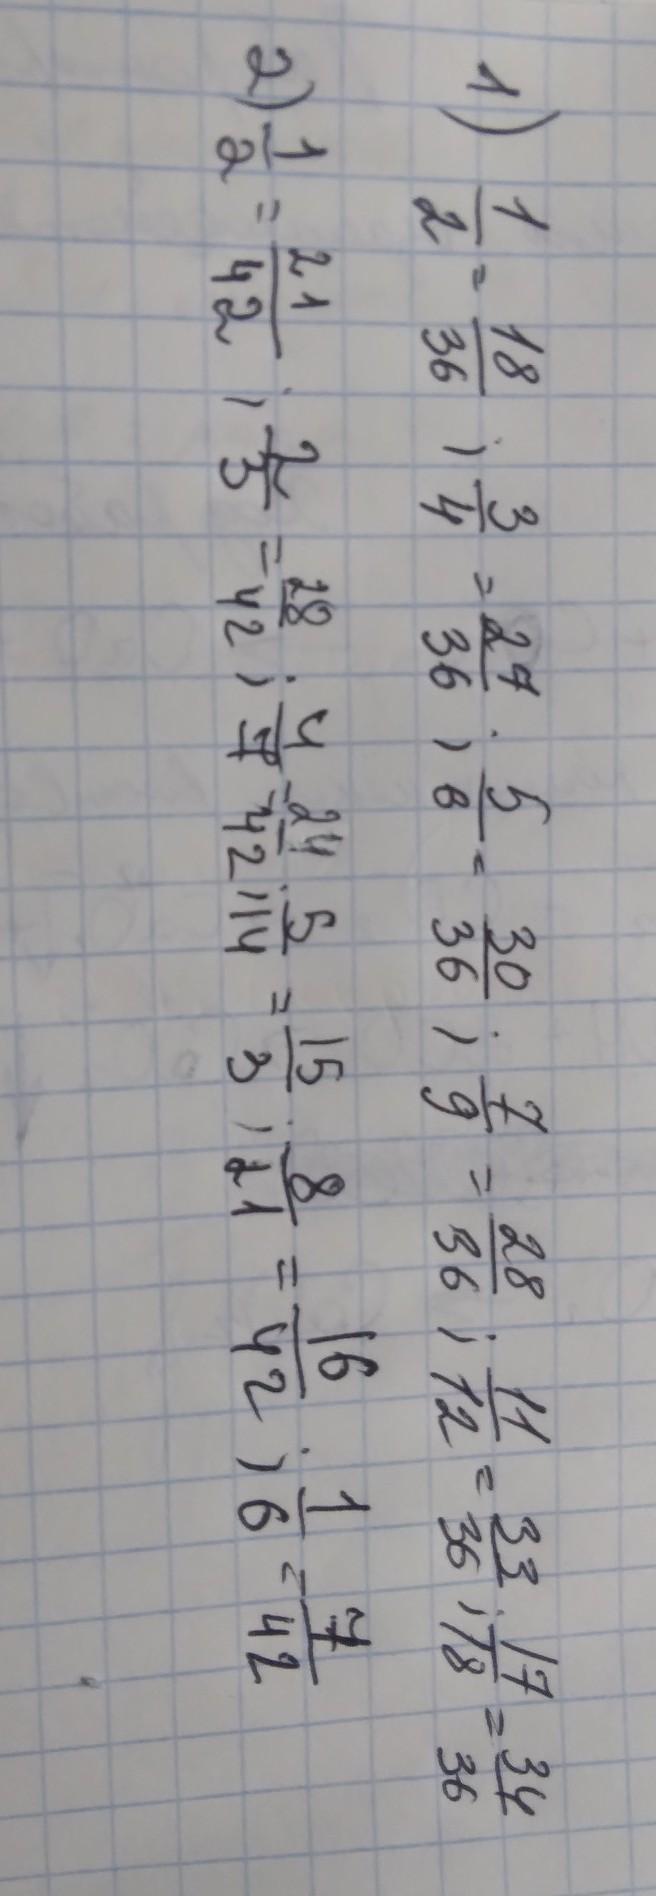 1) 1/2 = 18/36 ; 3/4 = 27/36 ; 5/6 = 30/36 ; 7/9 = 28/36 ; 11/12 = 33/36 ; 17/18 = 34/36
2) 1/2 = 21/42 ; 2/3 = 28/42 ; 4/7 = 24/42 ; 5/14 = 15/3 ; 8/21 = 16/42 ; 1/6 = 7/42